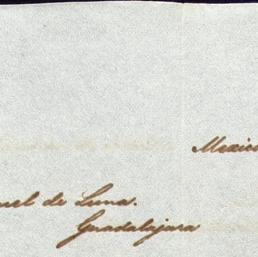 Mexico
uel de Luna.
Guadalajara